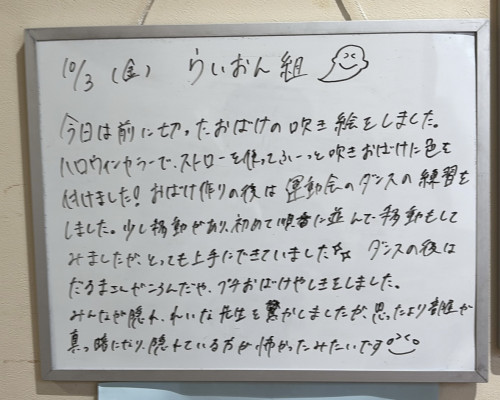 10/3 (金) らいおん組
今日は前に切ったおばけの吹き絵をしました。
ハロウィンカラーで、ストローを使ってふーっと吹きおばけに色を
付けました！おばけ作りの後は運動会のダンスの練習を
しました。少し移動があり、初めて順番に並んで移動もして
みましたが、とっても上手にできていました☆ ダンスの後は
だるまさんがころんだや、プチおばけやしきをしました。
みんなが隠れ、れいな先生を驚かしましたが、思ったより部屋が
真っ暗になり、隠れている方が怖かったみたいです